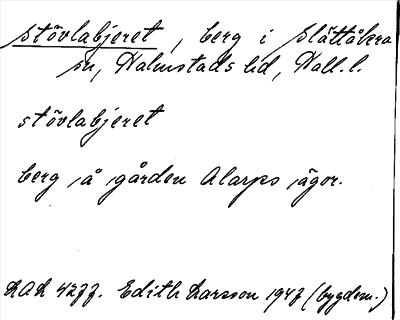 stövlabjeret, berg i Slättåkra
sn, Halmstads hd, Hall. l.
stövlabjeret
berg å gården Alarps ägor.
LAL 4277. Edith Larsson 1947 (bygdem.)